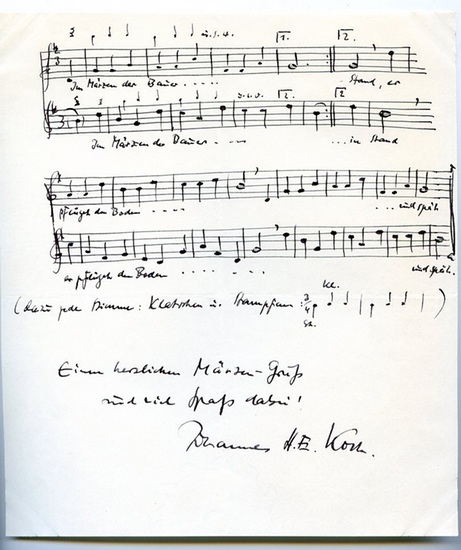 3 u.s.w. 1. 2.
Im Märzen der Bauer - - - - Stand, er
3 u.s.w. 1. 2.
Im Märzen der Bauer - - - - ...in Stand
pflüget den Boden - - - - ...und sät
er pflüget den Boden - - - - und sät.
kl.
(dazu jede Stimme: Klatschen u. Stampfen: 3/4 )
St.
Einen herzlichen Märzen-Gruß
und viel Spaß dabei!
Johannes H. E. Koch.